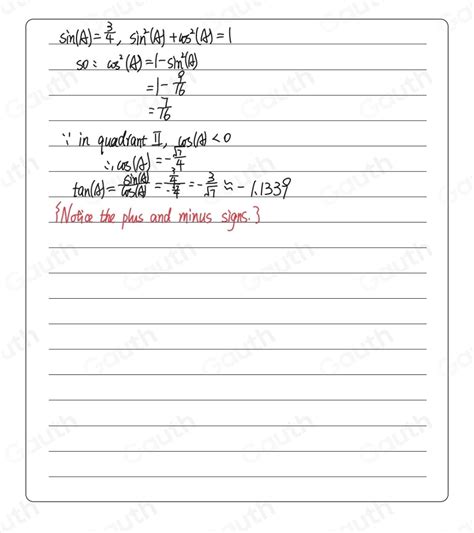 sin(A)=3/4, sin²(A)+cos²(A)=1
so: cos²(A)=1-sin²(A)
=1-9/16
=7/16
∵ in quadrant II, cos(A)<0
∴ cos(A)=-√7/4
tan(A)=sin(A)/cos(A)=(3/4)/(-√7/4)=-3/√7≈-1.1339
{Notice the plus and minus signs.}
Gauth